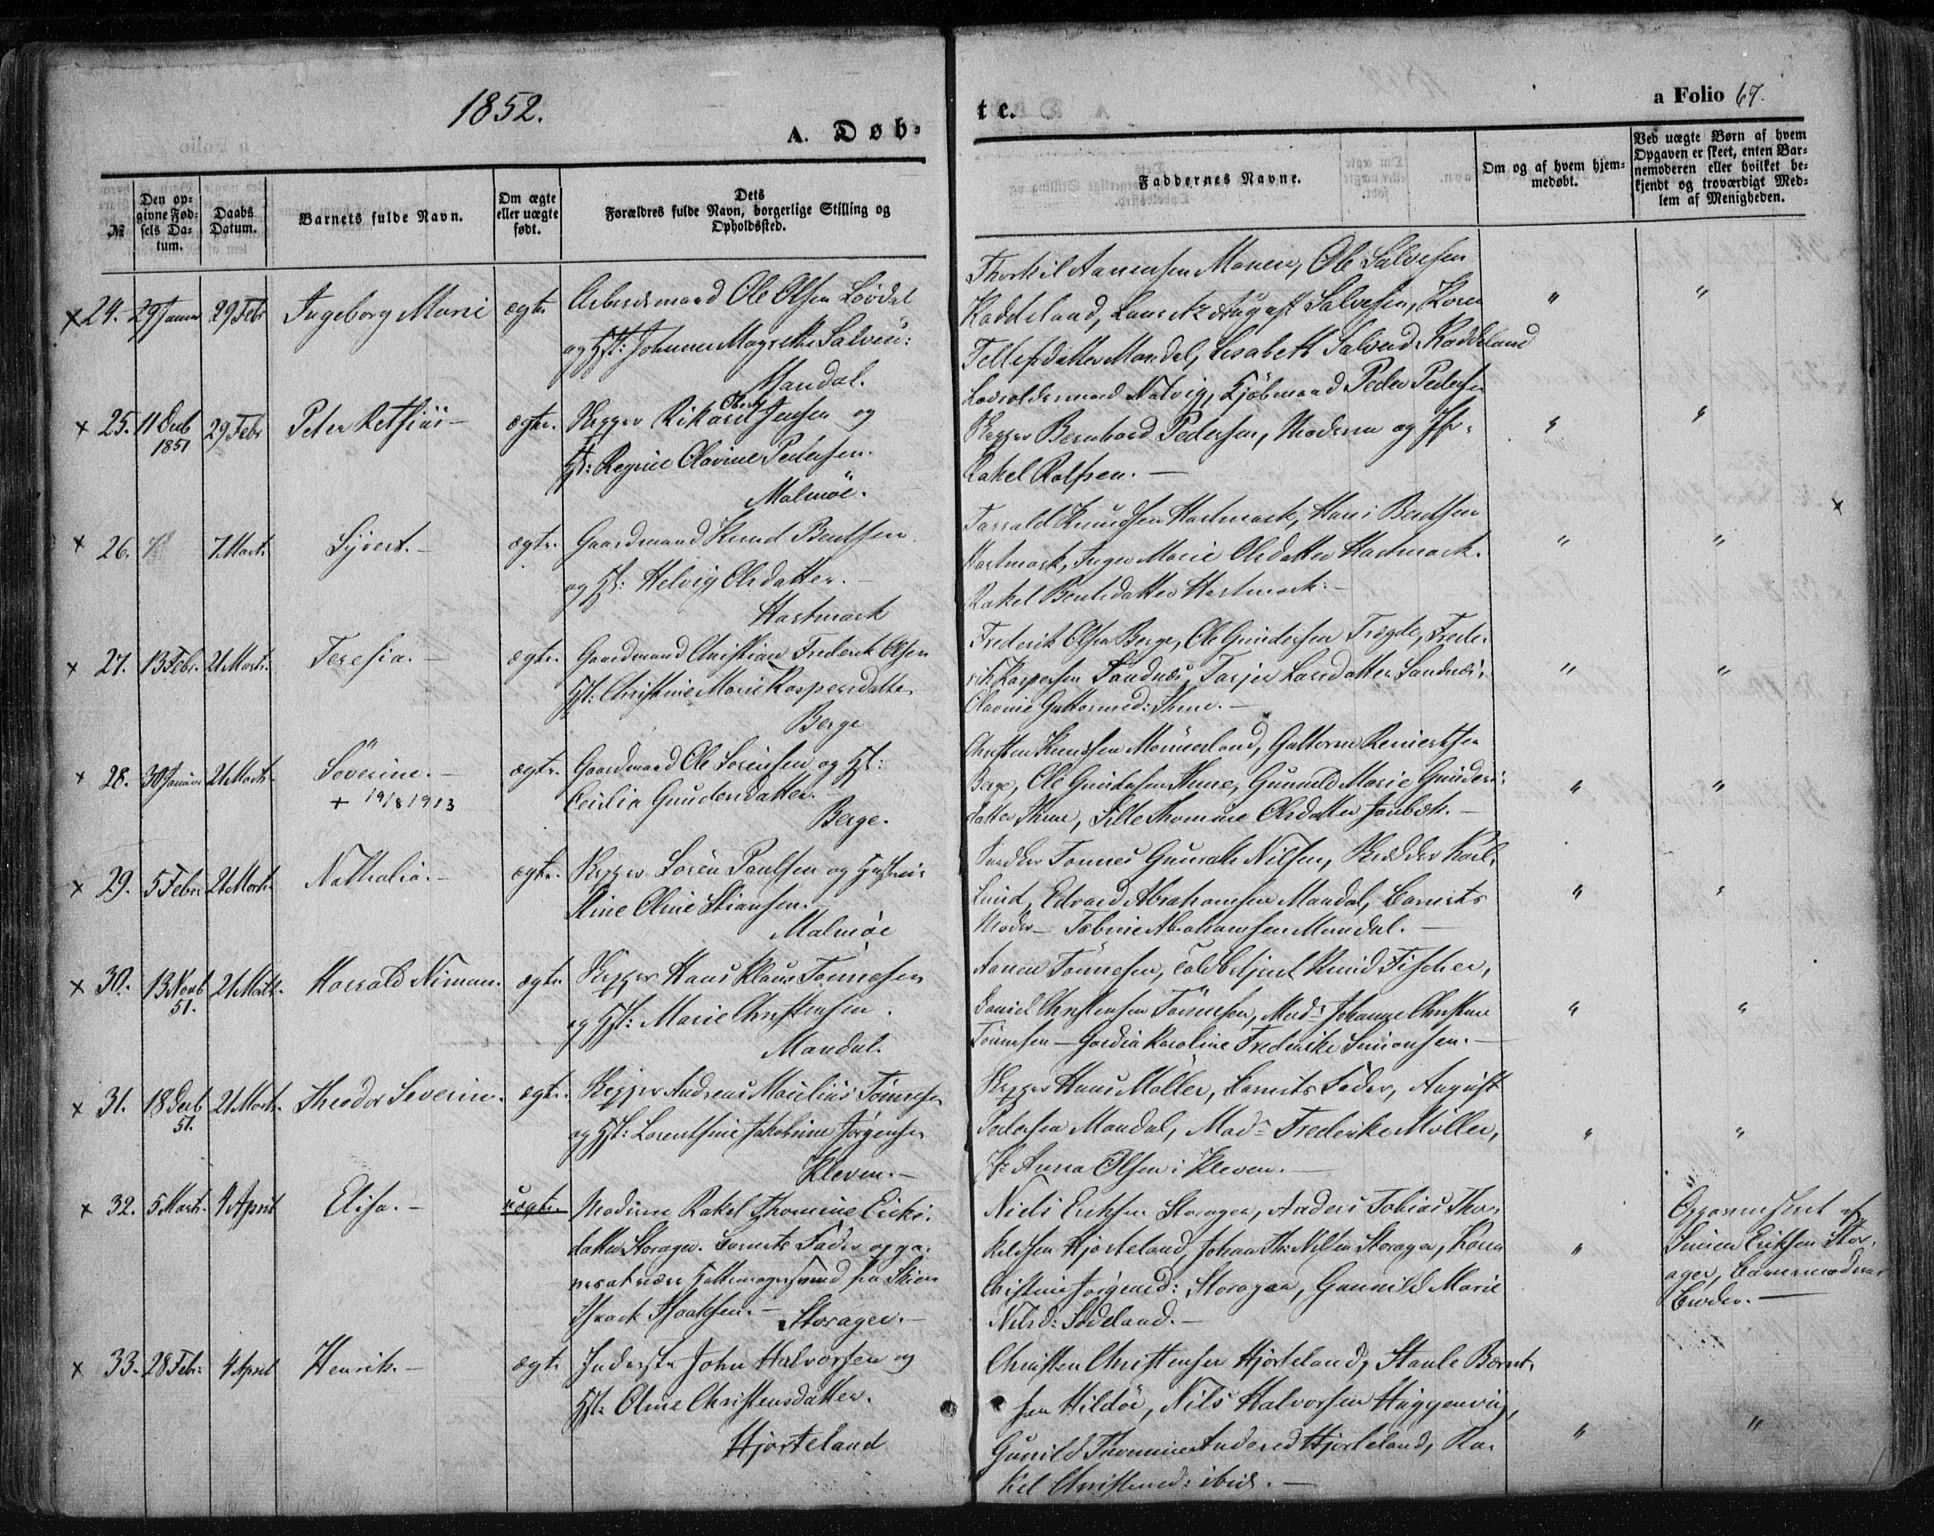 1852.
A. Døb-
te.
a Folio 67.
№
Den opgivne Fødsels Datum.
Daabs Datum.
Barnets fulde Navn.
Om ægte eller uægte født.
Dets Forældres fulde Navn, borgerlige Stilling og Opholdssted.
Faddernes Navne.
Om og af hvem hjemmedøbt.
Ved uægte Børn af hvem Opgaven er skeet, enten Barnemoderen eller hvilket bekjendt og troværdigt Medlem af Menigheden.
x 24. 29 Januar 29 Febr Ingeborg Marie ægte Arbeidsmand Ole Olsen Lövdal
og Hst: Johanne Magrethe Salves:
Mandal.
Ole Salvesen
Kaddeland, August Salvesen, Karen
Mandal, Lisabeth Salvesd. Kaddeland
x 25. 11 Decb 1851 29 Febr Peter Rethius - ægte. Skipper Rikard Olsen Jensen og
Hst: Regine Olovine Pedersen.
Malmöe.
Natvig, Kjöbmand Peder Pedersen
Skipper Bernhard Pedersen, Moderen og Jfr.
Rakel Rolfsen. -
x 26. 7 Marts Syvert. - ægte. Gaardmand Knud Bentsen
og Hst: Helvig Olsdatter. -
Hartmark
Tarald Knudsen Hartmark, Hans Bentsen
Hartmark, Inger Marie Olsdatter Hartmark.
Rakel Bentsdatter Hartmark. -
x 27. 13 Febr. 21 Marts. Teresia. - ægte. Gaardmand Christian Frederik Olsen
Hst: Christine Marie Kaspersdatter
Berge
Frederik Olsen Berge, Ole Gundersen Trögde, Frede-
rik Kaspersen Sandnæs, Tarjer Larsdatter Sandnæs,
Olavine Guttormsd: Skene. -
x 28. 30 Januar 21 Marts. Söverine. - ægte. Gaardmand Ole Sörensen og Hst:
+ 19/8 1913
Cecilia Gundersdatter.
Berge.
Christen Knudsen Mönnerland, Guttorm Reinertsen
Berge, Ole Gundersen Skene, Gunnild Marie Gunders-
datter Skene, Thomine Olsdatter
x 29. 5 Febr. 21 Marts. Nathalia. - ægte. Skipper Sören Paulsen og Hustrue
Stine Oline Stiansen. -
Malmöe
Tönnes Gunvald Nilsen, Skrædder Karl
Lund, Edvard Abrahamsen Mandal, Barnets
Moder - Tobine Abrahamsen Mandal. -
x 30. 13 Novb 51. 21 Marts. Harald Niman. ægte. Skipper Hans Klaus Tönnesen
og Hst: Marie Christensen.
Mandal.
Aanen Tönnesen, Toldbetjent Knud Fischer,
Daniel Christensen Tönnesen, Mad: Johanne Christine
Tönnesen - Gordia Karoline Frederike Simonsen. -
x 31. 18 Decb 51. 21 Marts. Theodor Severin. ægte. Skipper Andreas Marilius Tönnesen
og Hst: Lorentsine Jakobine Jörgensen
Kleven. -
Skipper Hans Möller, Barnets Fader, August
Pedersen Mandal, Mad: Frederike Möller,
Jfr: Anna Olsen i Kleven. -
x 32. 5 Marts. 4 April Elisa. - uægte. Moderen Rakel Thomine Eriks-
datter Storager. Barnets Fader opgi-
ves at være fra Skien
Isaak Isaaksen. - Storager. -
Niels Eriksen Storager, Anders Tobias Thor-
kildsen Hjorteland, Johan Th: Nilsen Storager, Karen
Christine Jörgensd: Storager, Gunnild Marie
Nilsd: Södeland. -
Opgaven skeet af
Simon Eriksen Stor-
ager, Barnemoderens
Broder. -
x 33. 28 Febr: 4 April Henrik. - ægte Inderst John Halvorsen og
Hst: Oline Christensdatter.
Hjorteland
Christen Christensen Hjorteland, Staale Bernt-
sen Hildöe, Nils Halvorsen Häggenvig,
Gunild Thomine Andersd Hjorteland, Ra-
kel Christensd: ibid. -